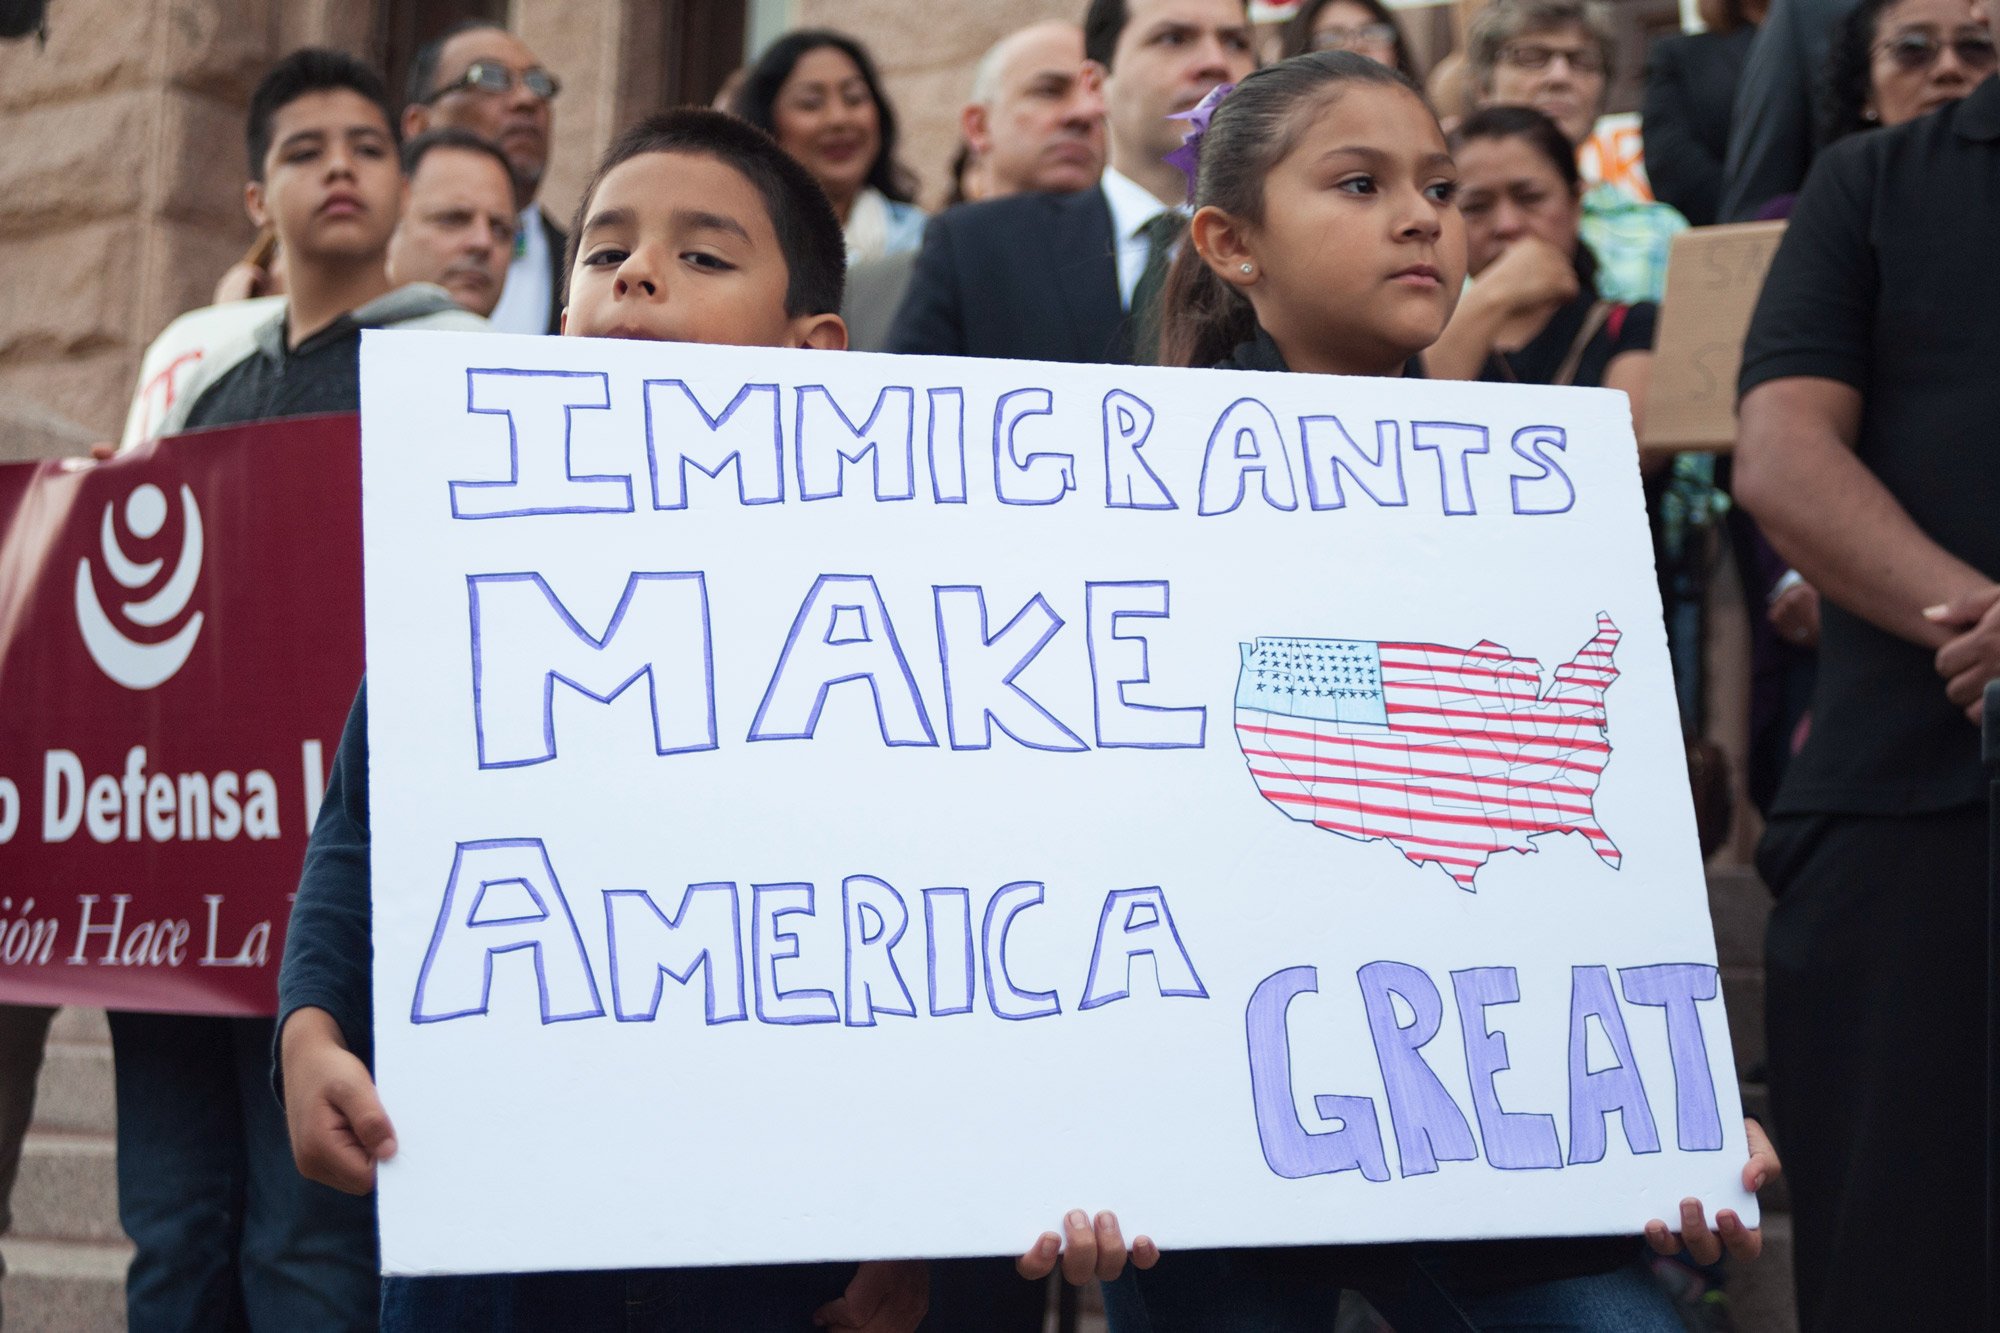 IMMIGRANTS
MAKE
AMERICA
GREAT
o Defensa
ión Hace La